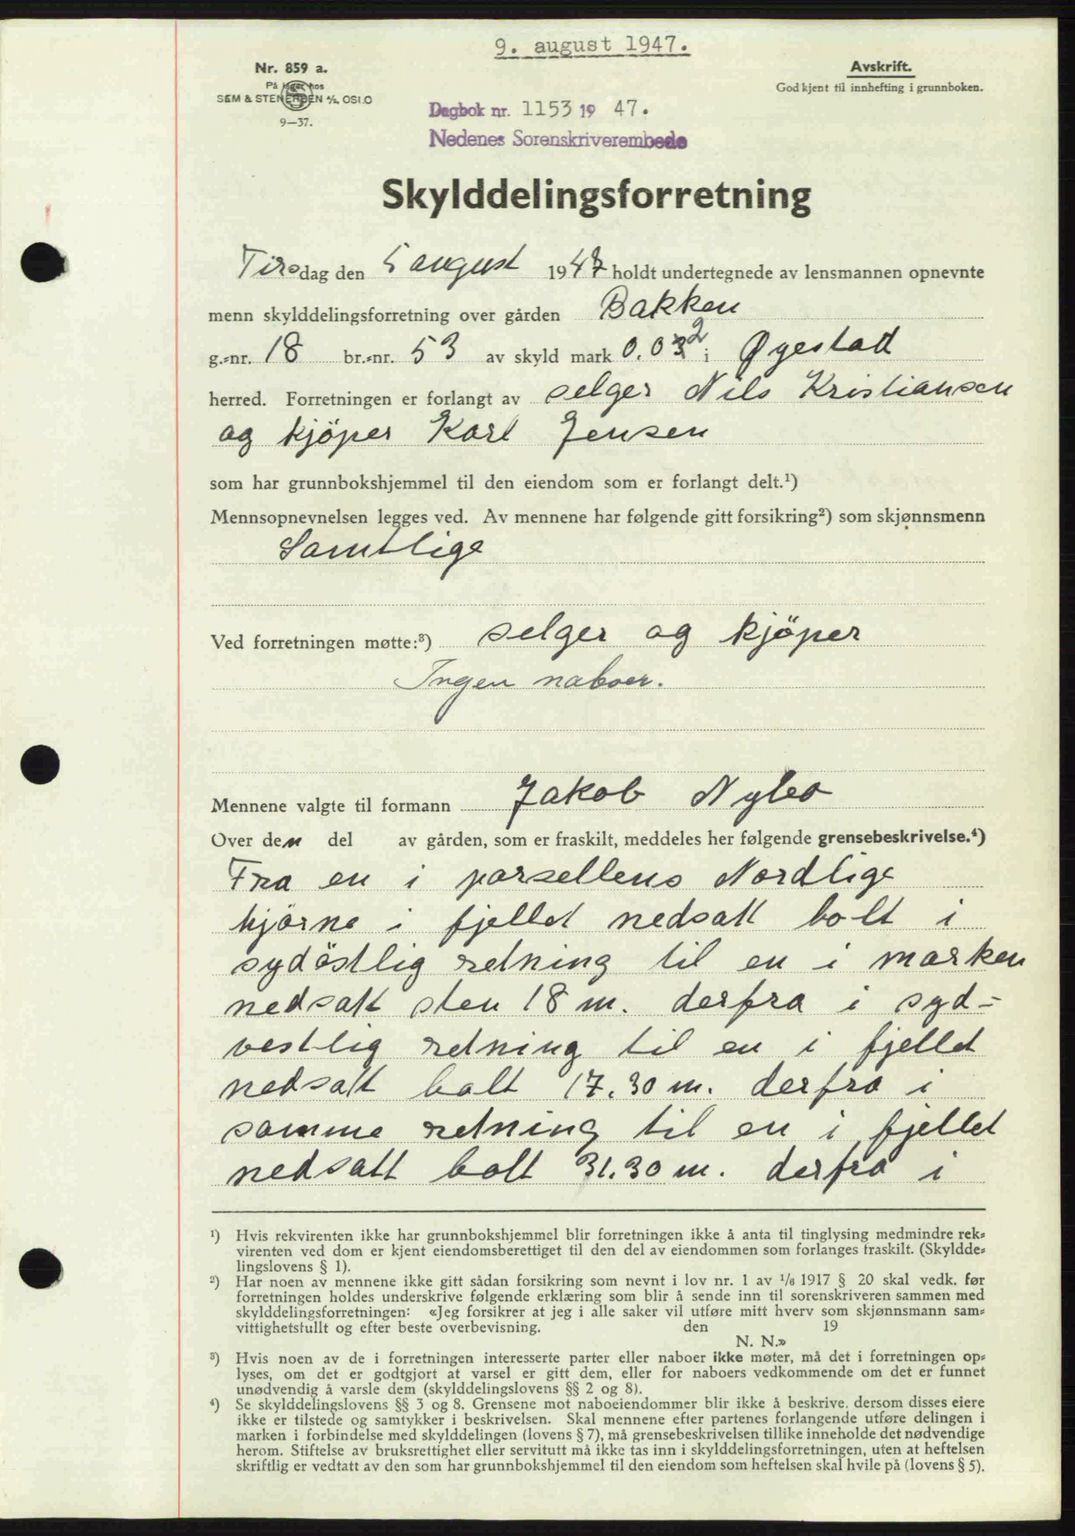 9. august 1947.
Nr. 859 a.
På lager hos
SEM & STENERSEN A/S, OSLO
9—37.
Avskrift.
Godkjent til innhefting i grunnboken.
Dagbok nr. 1153 19 47.
Nedenes Sorenskriverembede
Skylddelingsforretning
Tirsdag den 5 august 1947 holdt undertegnede av lensmannen opnevnte
menn skylddelingsforretning over gården Bakken
g.-nr. 18 br.-nr. 53 av skyld mark 0.02 i Øyestad
herred. Forretningen er forlangt av selger Nils Kristiansen
og kjöper Karl Jensen
som har grunnbokshjemmel til den eiendom som er forlangt delt.¹)
Mennsopnevnelsen legges ved. Av mennene har følgende gitt forsikring²) som skjønnsmenn
Samtlige
Ved forretningen møtte:³) selger og kjöper
Ingen naboer.
Mennene valgte til formann Jakob Nybo
Over den del av gården, som er fraskilt, meddeles her følgende grensebeskrivelse.⁴)
Fra en i parsellens Nordlige
hjörne i fjellet nedsatt bolt i
sydöstlig retning til en i marken
nedsatt sten 18 m. derfra i syd-
vestlig retning til en i fjellet
nedsatt bolt 17.30 m. derfra i
samme retning til en i fjellet
nedsatt bolt 31.30 m. derfra i
¹) Hvis rekvirenten ikke har grunnbokshjemmel blir forretningen ikke å anta til tinglysing medmindre rek-
virenten ved dom er kjent eiendomsberettiget til den del av eiendommen som forlanges fraskilt. (Skyldde-
lingslovens § 1).
²) Har noen av mennene ikke gitt sådan forsikring som nevnt i lov nr. 1 av 1/6 1917 § 20 skal vedk. før
forretningen holdes underskrive følgende erklæring som blir å sende inn til sorenskriveren sammen med
skylddelingsforretningen: «Jeg forsikrer at jeg i alle saker vil utføre mitt hverv som skjønnsmann sam-
vittighetsfullt og efter beste overbevisning. den 19
N. N.»
³) Hvis noen av de i forretningen interesserte parter eller naboer ikke møter, må det i forretningen op-
lyses, om det er godtgjort at varsel er gitt dem, eller for naboers vedkommende om det er funnet
unødvendig å varsle dem (skylddelingslovens §§ 2 og 8).
⁴) Se skylddelingslovens §§ 3 og 8. Grensene mot naboeiendommer blir ikke å beskrive, dersom disses eiere
ikke er tilstede og samtykker i beskrivelsen. Skal mennene efter partenes forlangende utføre delingen i
marken i forbindelse med skylddelingen (lovens § 7), må grensebeskrivelsen tillike inneholde det nødvendige
herom. Stiftelse av bruksrettighet eller servitutt må ikke tas inn i skylddelingsforretningen, uten at heftelsen
skriftlig er vedtatt av den som har grunnbokshjemmel til den eiendom som heftelsen skal hvile på (lovens § 5).